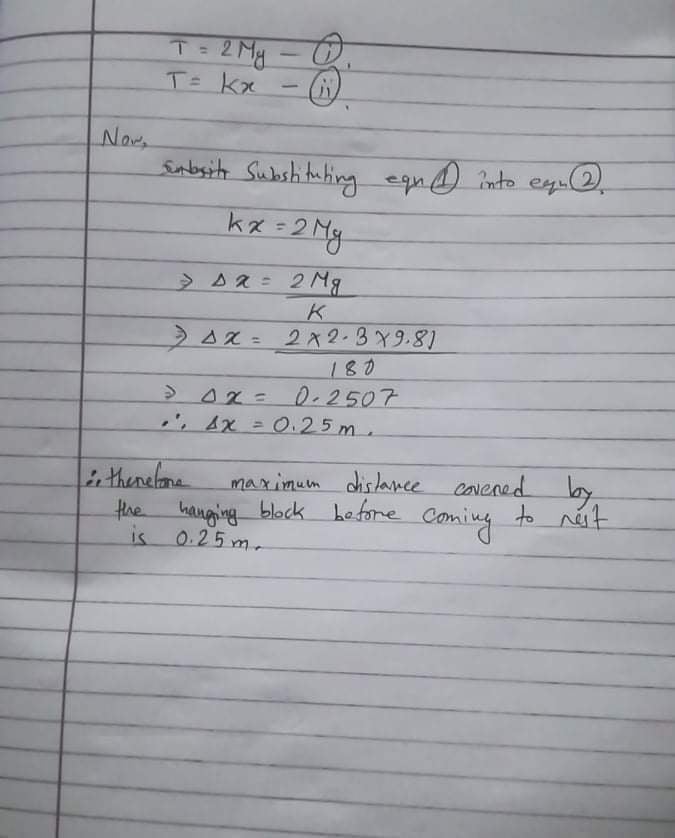 T = 2Mg — (i).
T = Kx — (ii).
Now,
Substituting eqn (1) into eqn (2).
kx = 2Mg
⇒ Δx = 2Mg
K
⇒ Δx = 2×2.3×9.81
180
⇒ Δx = 0.2507
∴ Δx = 0.25m.
∴ therefore maximum distance covered by
the hanging block before coming to rest
is 0.25m.